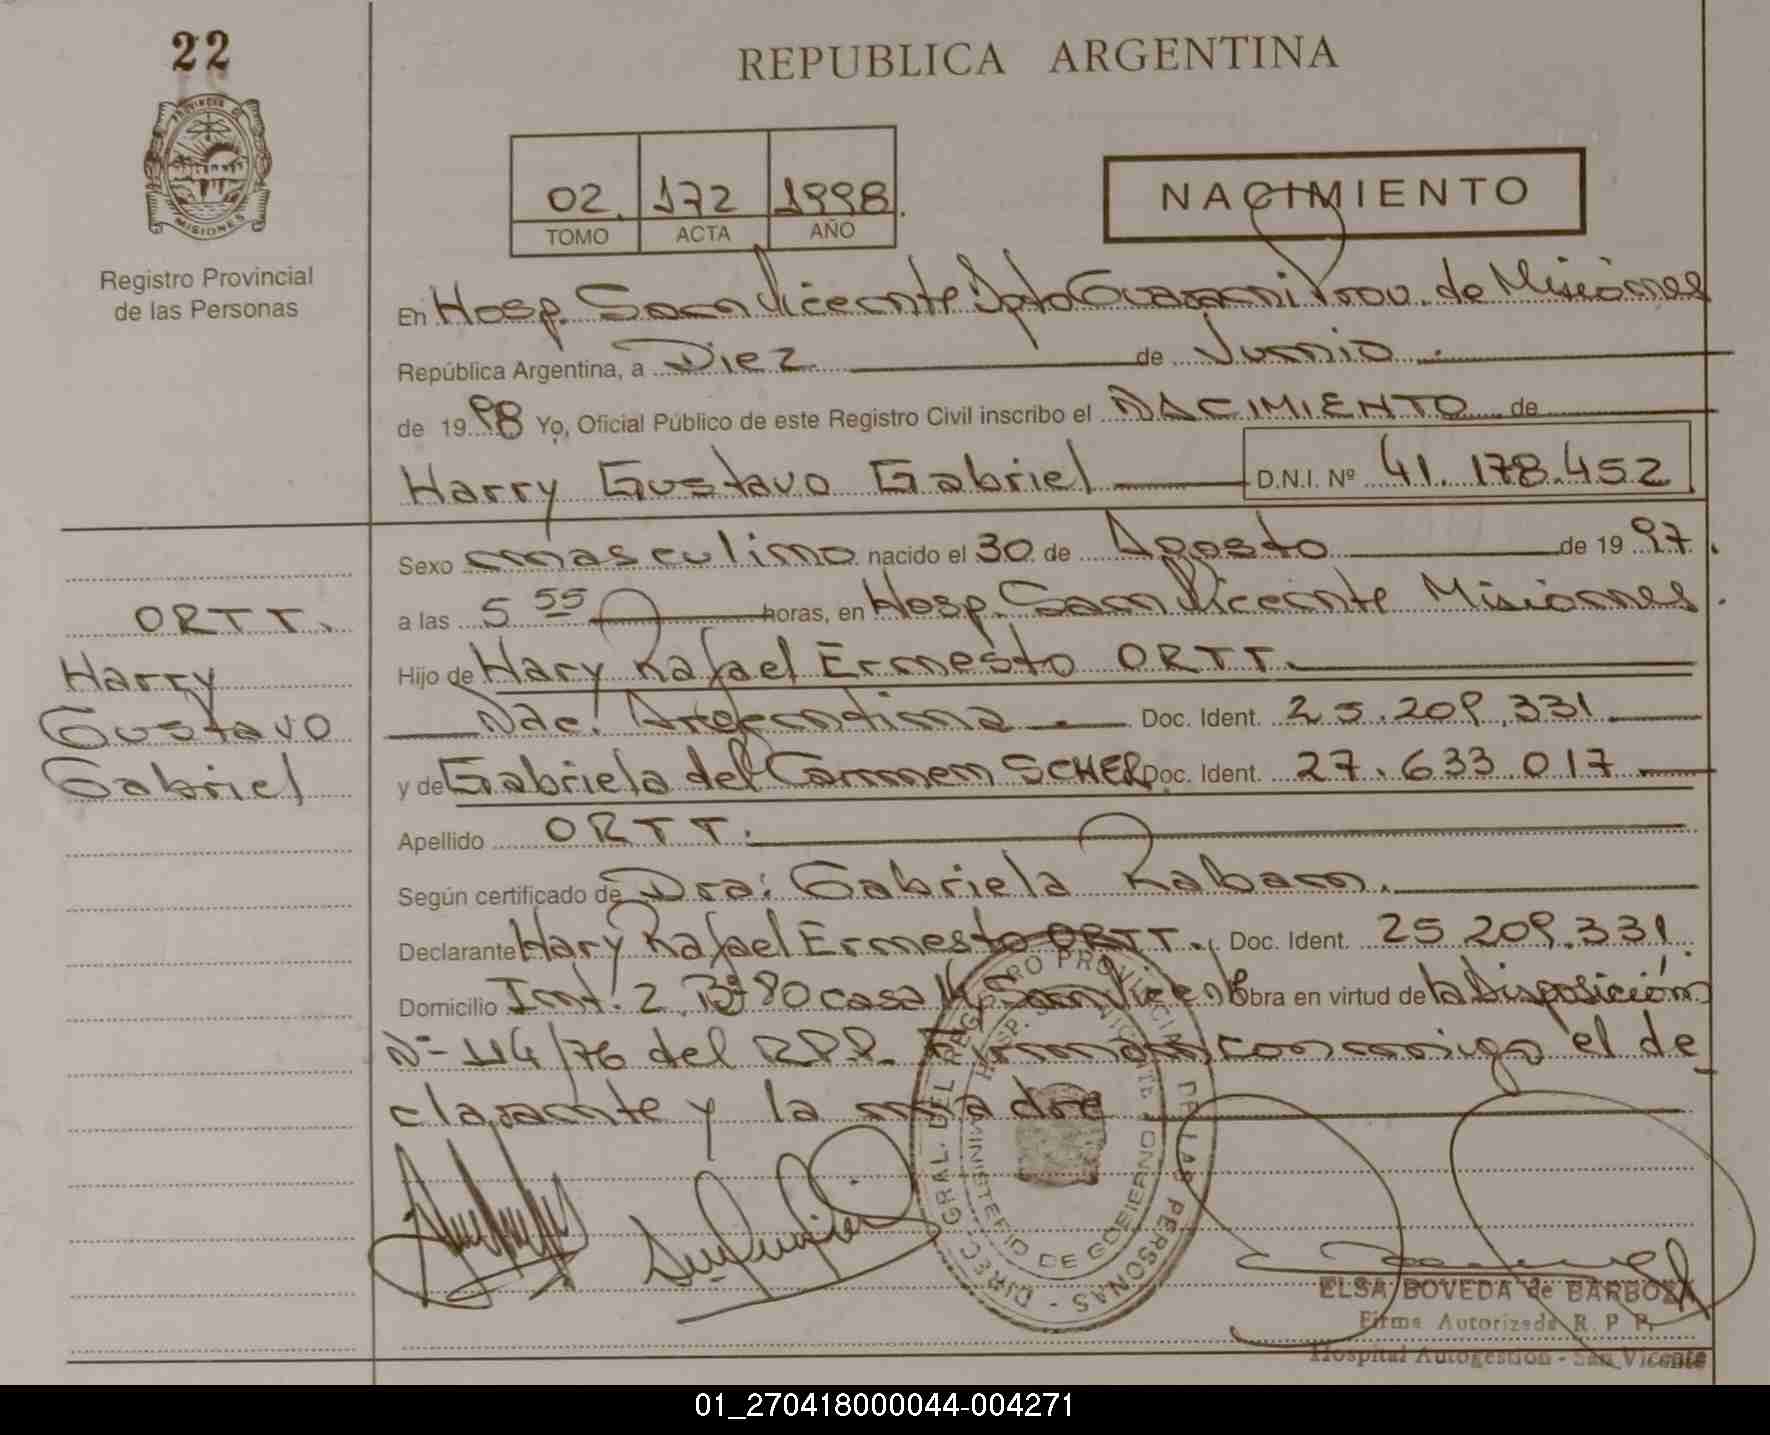 22
REPUBLICA ARGENTINA
PROVINCIA DE
MISIONES
Registro Provincial
de las Personas
02. 172 1998.
TOMO ACTA AÑO
NACIMIENTO
En Hosp. San Vicente Dpto Guarani Prov. de Misiones
República Argentina, a Diez de Junio.
de 1998 Yo, Oficial Público de este Registro Civil inscribo el NACIMIENTO de
Harry Gustavo Gabriel D.N.I. Nº 41.178.452
Sexo masculino nacido el 30 de Agosto de 1997.
a las 5 55 horas, en Hosp. San Vicente Misiones.
Hijo de Hary Rafael Ernesto ORTT.
Nac. Argentina. Doc. Ident. 25.209.331
y de Gabriela del Carmen SCHER. Doc. Ident. 27.633.017
Apellido ORTT.
Según certificado de Dra: Gabriela Raban.
Declarante Hary Rafael Ernesto ORTT. Doc. Ident. 25 209.331.
Domicilio Int. 2 Bº 80 casa San Vicente Obra en virtud de la Disposición
Nº 114/76 del R.P.P. Firman conmigo el de
clarante y la madre
ORTT.
Harry
Gustavo
Gabriel
DIREC. GRAL. DEL REGISTRO PROVINCIAL DE LAS PERSONAS -
HOSP. SAN VICENTE
MINISTERIO DE GOBIERNO
ELSA BOVEDA de BARBOZA
Firma Autorizada R. P. P.
Hospital Autogestion - San Vicente
01_270418000044-004271